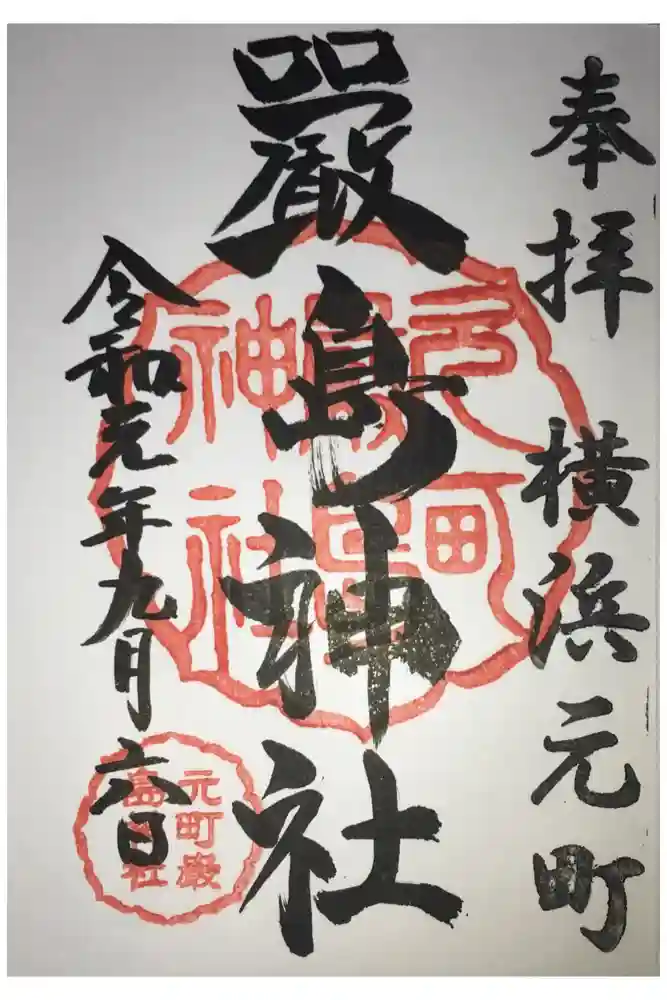 奉拝 横浜元町
嚴島神社
令和元年九月六日
元町
嚴島
神社
元町嚴
島神社